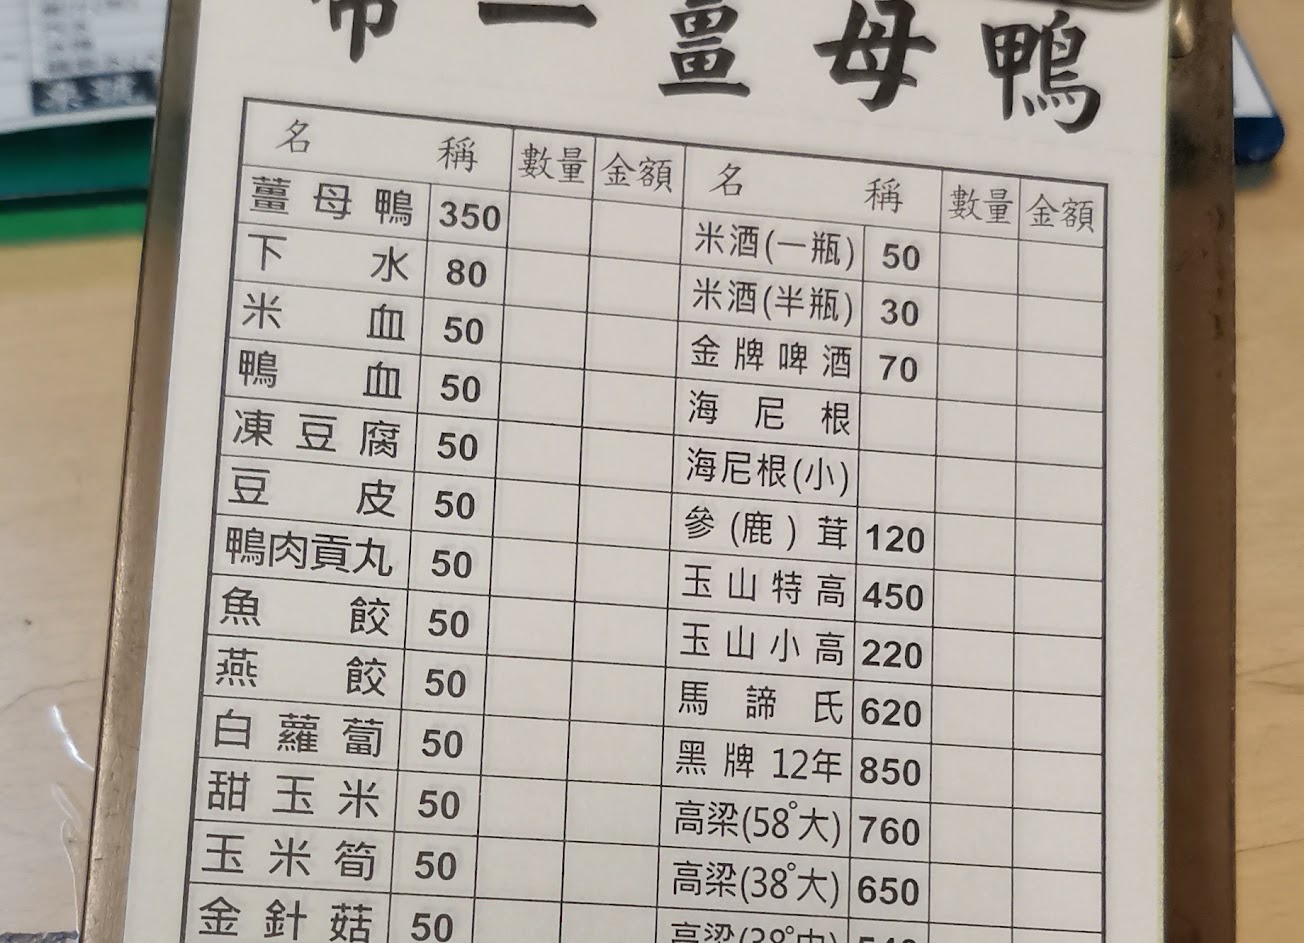 帝一薑母鴨
名稱 數量 金額 名稱 數量 金額
薑母鴨 350 米酒(一瓶) 50
下水 80 米酒(半瓶) 30
米血 50 金牌啤酒 70
鴨血 50 海尼根
凍豆腐 50 海尼根(小)
豆皮 50 參(鹿)茸 120
鴨肉貢丸 50 玉山特高 450
魚餃 50 玉山小高 220
燕餃 50 馬諦氏 620
白蘿蔔 50 黑牌12年 850
甜玉米 50 高梁(58°大) 760
玉米筍 50 高梁(38°大) 650
金針菇 50 高梁(38°中)